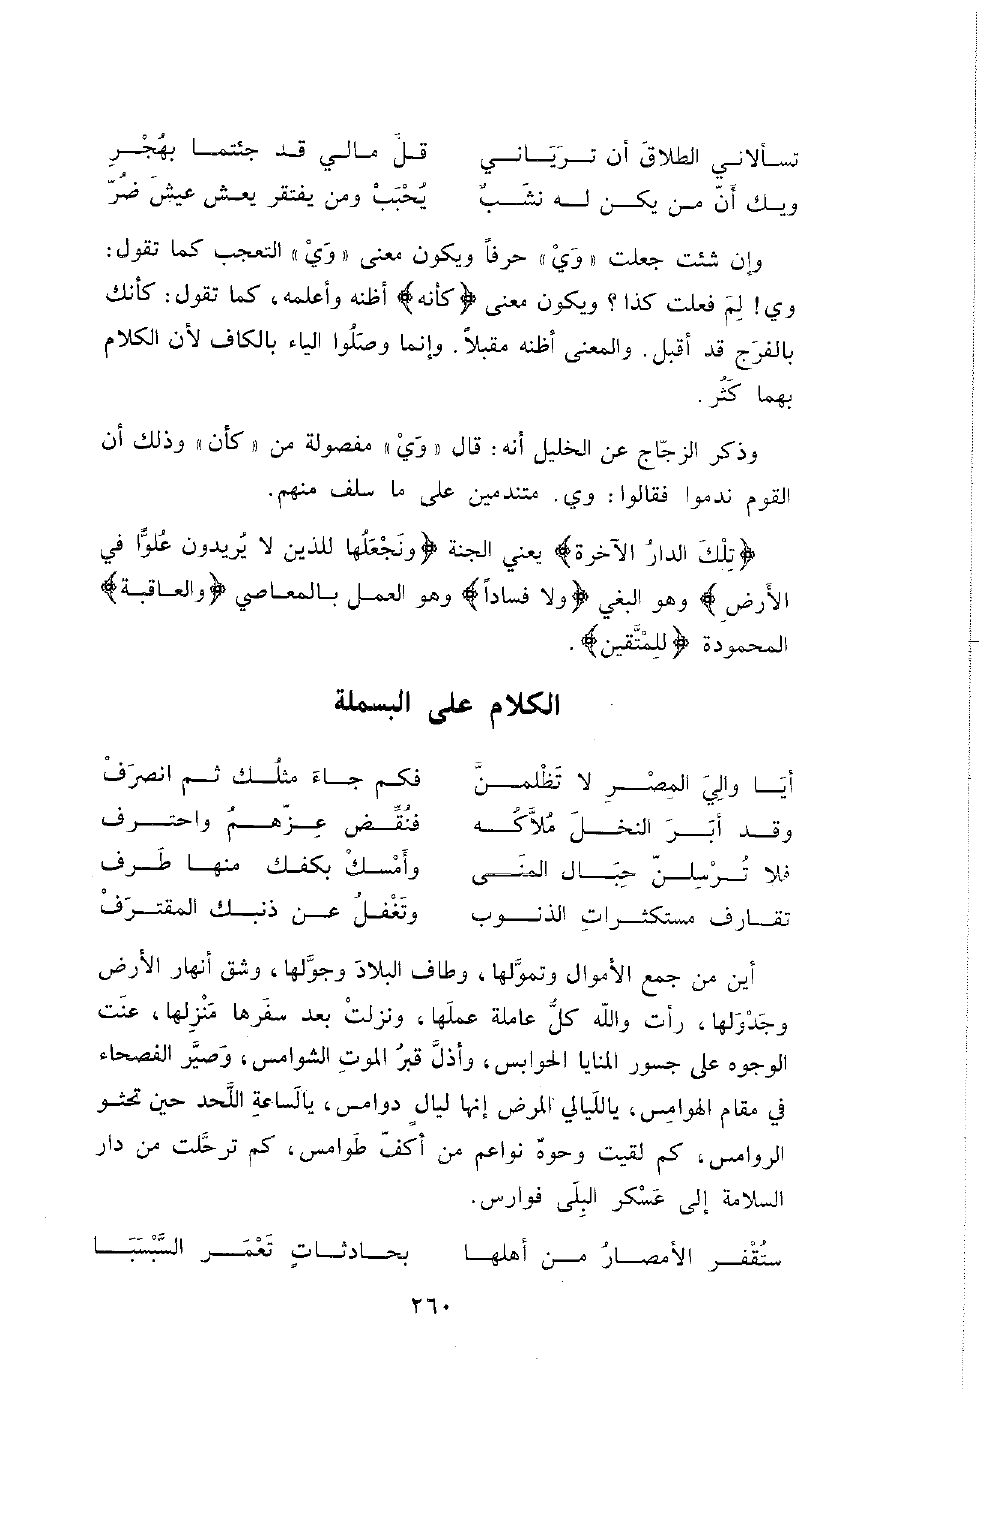 تسألاني الطلاقَ أن تريَاني قلَّ مالي قد جئتما بهُجْرِ
ويك أنّ من يكن له نشَبٌ يُحْبَبْ ومن يفتقر يعش عيشَ ضُرِّ
وإن شئت جعلت «وَيْ» حرفاً ويكون معنى «وَيْ» التعجب كما تقول:
وي! لِمَ فعلت كذا؟ ويكون معنى ﴿كأنه﴾ أظنه وأعلمه، كما تقول: كأنك
بالفرَج قد أقبل. والمعنى أظنه مقبلاً. وإنما وصَلُوا الياء بالكاف لأن الكلام
بهما كَثُر.
وذكر الزجّاج عن الخليل أنه: قال «وَيْ» مفصولة من «كأن» وذلك أن
القوم ندموا فقالوا: وي. متندمين على ما سلف منهم.
﴿تِلْكَ الدارُ الآخرة﴾ يعني الجنة ﴿ونَجْعَلُها للذين لا يُريدون عُلوًّا في
الأرض﴾ وهو البغي ﴿ولا فساداً﴾ وهو العمل بالمعاصي ﴿والعاقبة﴾
المحمودة ﴿للمُتَّقين﴾.
الكلام على البسملة
أيَا واليَ المِصْرِ لا تَظْلمنَّ فكم جاءَ مثلُك ثم انصرَفْ
وقد أبَرَ النخلَ مُلاَّكُه فنُقِّض عِزّهمُ واحترف
فلا تُرْسِلنّ حِبَال المنَى وأمْسكْ بكفك منها طَرف
تقارف مستكثراتِ الذنوب وتَغْفلُ عن ذنبك المقترَفْ
أين من جمع الأموال وتموَّلها، وطاف البلادَ وجوَّلها، وشق أنهار الأرض
وجَدْوَلها، رأت والله كلُّ عاملة عملَها، ونزلتْ بعد سفَرها مَنْزِلها، عنَت
الوجوه على جسور المنايا الحوابس، وأذلَّ قبرُ الموتِ الشوامس، وَصيَّر الفصحاء
في مقام الهوامس، ياللّيالي المرض إنها ليالٍ دوامس، يالَساعةِ اللَّحد حين تحثو
الروامس، كم لقيت وجوهٌ نواعم من أكفّ طوامس، كم ترحَّلت من دار
السلامة إلى عَسْكر البِلَى فوارس.
ستُقْفر الأمصارُ من أهلها بحادثاتٍ تَعْمَر السَّبْسَبَا
٢٦٠